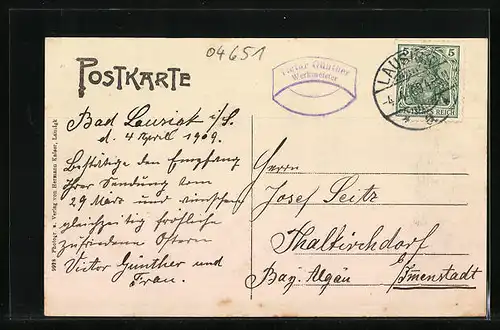 04651
POSTKARTE
Victor Günther
Werkmeister
LAUSIGK
5
REICH
Bad Lausick i/S.
d. 4 April 1909.
Bestätige den Empfang
Ihrer Sendung vom
29 März und wünschen
gleichzeitig fröhliche
zufriedene Ostern
Victor Günther und
Frau.
Herrn
Josef Seitz
Thalkirchdorf
Bay. Algäu b/Immenstadt
9918 Photogr. u. Verlag von Hermann Keiser, Lausigk